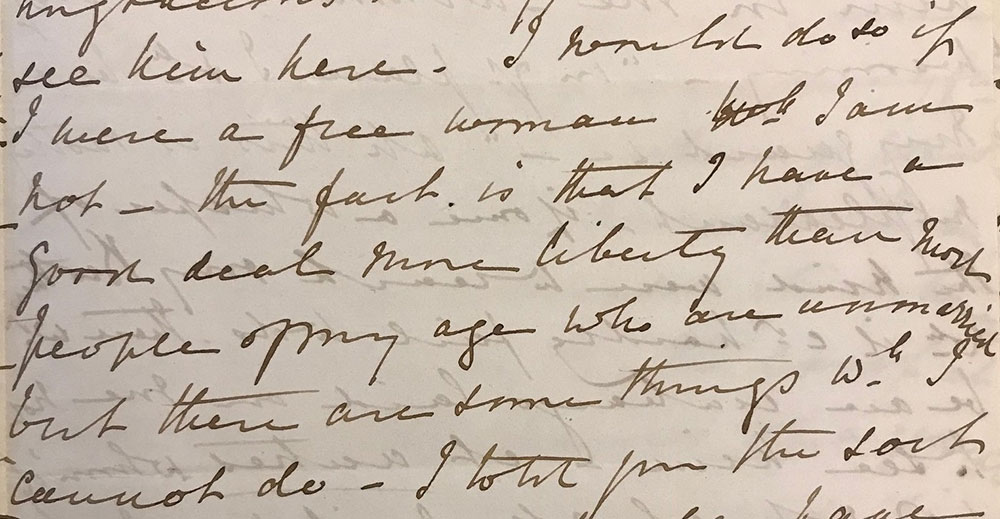 see him here - I would do so if
I were a free woman wh I am
not - the fact is that I have a
good deal more liberty than most
people of my age who are unmarried
but there are some things wh I
cannot do - I told you the sort
have